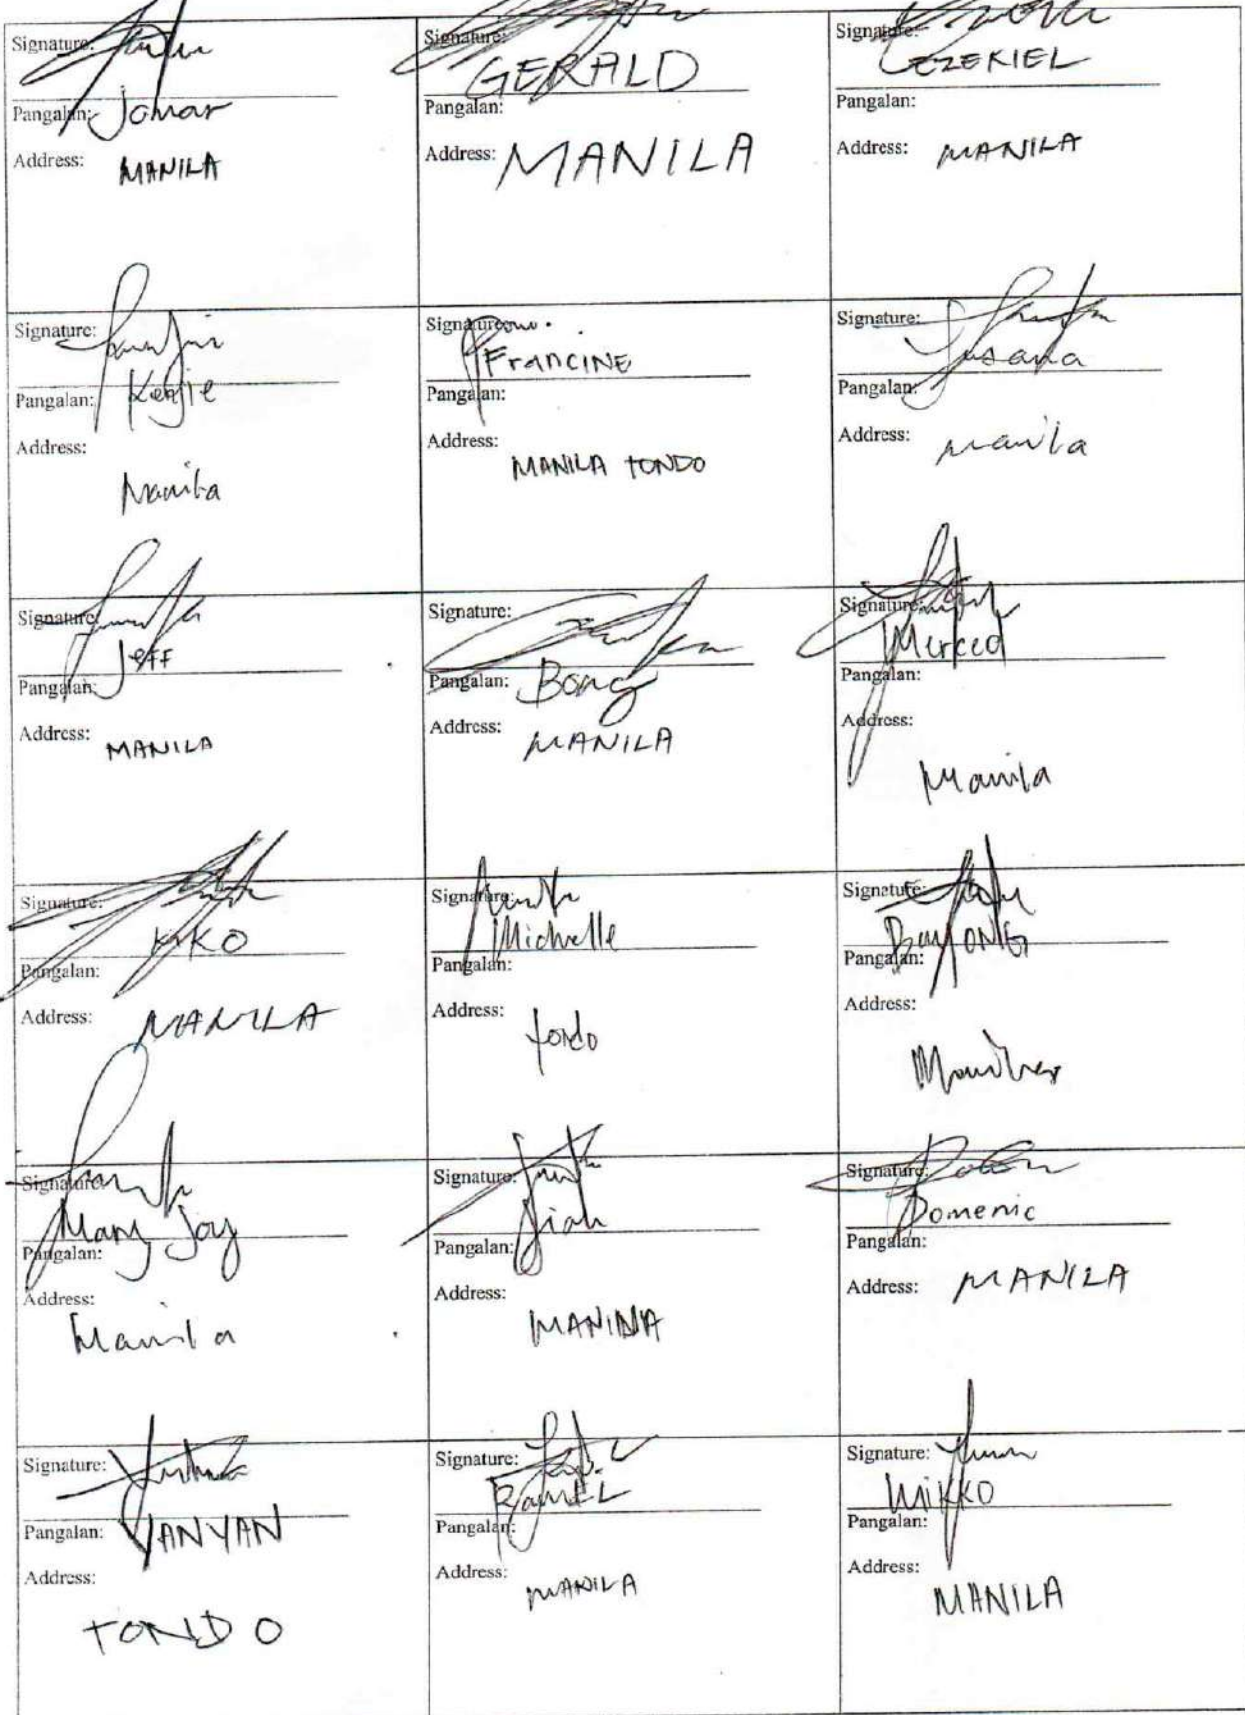 Signature:
Jomar
Pangalan:
Address: MANILA
Signature:
GERALD
Pangalan:
Address: MANILA
Signature:
EZEKIEL
Pangalan:
Address: MANILA
Signature:
Kenjie
Pangalan:
Address:
Manila
Signature:
Francine
Pangalan:
Address:
MANILA TONDO
Signature:
Susana
Pangalan:
Address: Manila
Signature:
Jeff
Pangalan:
Address: MANILA
Signature:
Pangalan: Bong
Address: MANILA
Signature:
Merced
Pangalan:
Address:
Manila
Signature:
KIKO
Pangalan:
Address: MANILA
Signature:
Michelle
Pangalan:
Address:
tondo
Signature:
Pangalan:
Address:
Signature:
Mary Joy
Pangalan:
Address:
Manila
Signature:
Pangalan:
Address:
Signature:
Domenic
Pangalan:
Address: MANILA
Signature:
Pangalan: YANYAN
Address:
TONDO
Signature:
RamEL
Pangalan:
Address: MANILA
Signature:
MIKKO
Pangalan:
Address:
MANILA